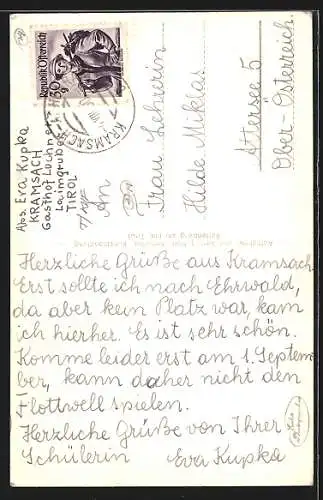 Abs. Eva Kupka
KRAMSACH
Gasthof Luchner
Laimgruber
TIROL
Republik Österreich
30
KRAMSACH
An
Frau Lehrerin
Hilde Miklas
Attersee 5
Ober-Österreich.
Herzliche Grüße aus Kramsach
Erst sollte ich nach Ehrwald,
da aber kein Platz war, kam
ich hierher. Es ist sehr schön.
Komme leider erst am 1. Septem-
ber, kann daher nicht den
Flottwell spielen.
Herzliche Grüße von Ihrer
Schülerin Eva Kupka